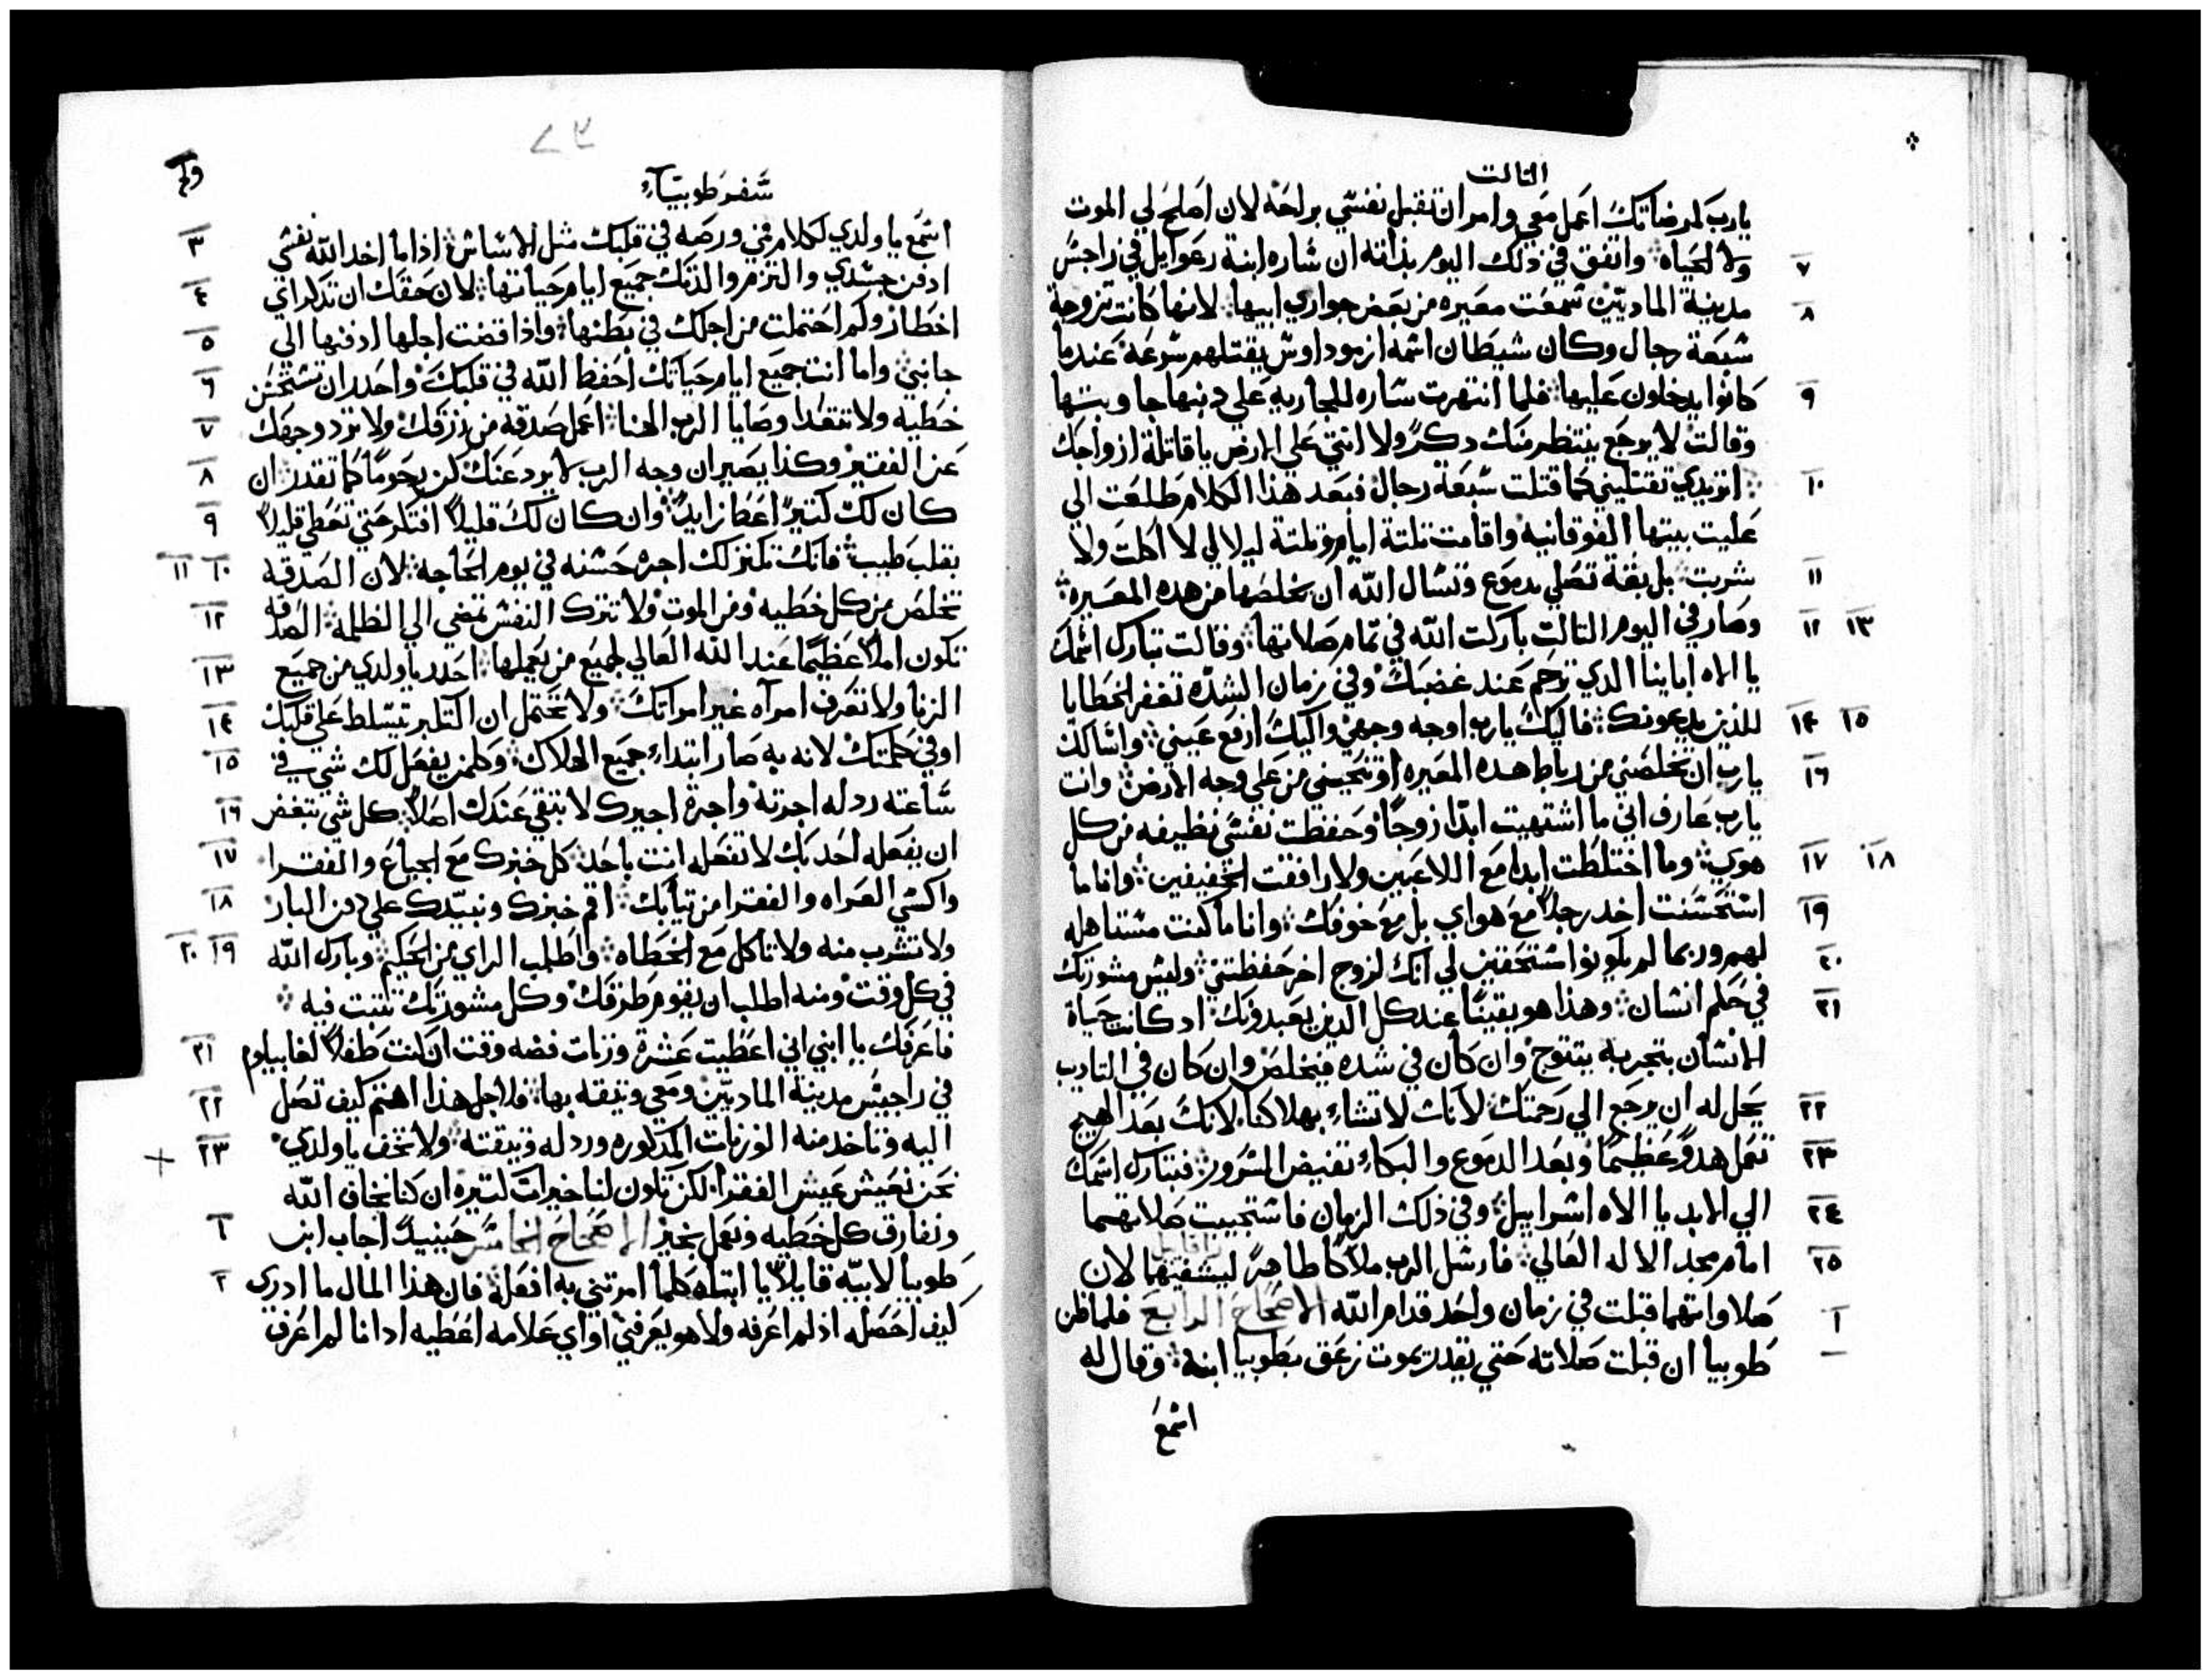 الثالث
يارب لمرضاتك اعمل معي وامر ان تقبل نفسي براحة لان اصلح لي الموت
ولا الحياه واتفق في ذلك اليوم بذاته ان ساره ابنة رعوايل في راجس
٧
مدينة الماديين سمعت معيره من بعض جواري ابيها لانها كانت تزوجة
٨
سبعة رجال وكان شيطان اسمه ازموداوس يقتلهم سرعه عندما
كانوا يدخلون عليها فلما انتهرت ساره للجاريه علي دنبها جاوبتها
٩
وقالت لا يرجع ينتظر منك دكرا ولا انتي علي الارض ياقاتلة ازواجك
اتريدي تقتليني كما قتلت سبعة رجال فبعد هذا الكلام طلعت الي
١٠
عليت بيتها الفوقانيه واقامت تلتة ايام وتلتة ليالي لا اكلت ولا
شربت بل بقة تصلي بدموع وتسال الله ان يخلصها من هده المعيره
١١
وصار في اليوم التالت باركت الله في تمام صلاتها وقالت تبارك اسمك
١٢ ١٣
يا الاه اباينا الدي ترحم عند غضبك وفي زمان الشده تغفر الخطايا
للذين يدعونك فاليك يارب اوجه وجهي واليك ارفع عيني واسالك
١٤ ١٥
يارب ان تخلصني من رباط هده المعيره او تنجيني من علي وجه الارض وانت
١٦
يارب عارف اني ما اشتهيت ابدا زوجا وحفظت نفسي نظيفه من كل
هوي وما اختلطت ابدا مع اللاعبين ولا رافقت الخفيفين وانا ما
١٧ ١٨
استحسنت اخد رجلا مع هواي بل مع خوفك وانا ما كنت مستاهله
١٩
لهم وربما لم يكونوا مستحقين لي انك لزوج اخر حفظتني وليس مشورتك
٢٠
في حكم انسان وهذا هو يقينا عند كل الدين يعبدونك اد كانت حياة
٢١
الانسان بتجربه يتتوج وان كان في شده فيخلص وان كان في التاديب
يحل له ان يرجع الي رحمتك لانك لا تشاء بهلاكنا لانك بعد الهيج
٢٢
تعمل هدوا عظيما وبعد الدموع والبكاء تفيض السرور فتبارك اسمك
٢٣
الي الابد يا الاه اسراييل وفي ذلك الزمان فاستجيبت صلاتهما
٢٤
امام مجد الاله العالي فارسل الرب ملاكا طاهرا ليشفيهما لان
رافاييل
٢٥
صلاواتهما قبلت في زمان واحد قدام الله الاصحاح الرابع فلما ظن
١
طوبيا ان قبلت صلاته حتي يقدر يموت زعق بطوبيا ابنه وقال له
اسمع
سفر طوبياء
اسمع ياولدي لكلام فمي ورصه في قلبك مثل الاساس اذا ما اخد الله نفسي
٣
ادفن جسدي والتزم والدتك جميع ايام حياتها لان حقك ان تدكر اي
٤
اخطار وكم احتملت من اجلك في بطنها واذا قضت اجلها ادفنها الي
٥
جانبي واما انت جميع ايام حياتك احفظ الله في قلبك واحدر ان تستحسن
٦
خطيه ولا تتعدا وصايا الرب الهنا اعمل صدقه من رزقك ولا ترد وجهك
٧
عن الفقير وكذا يصير ان وجه الرب لا يرد عنك كن رحوما كما تقدر ان
٨
كان لك كتيرا اعط زايدا وان كان لك قليلا افتكر حتي تعطي قليلا
٩
بقلب طيب فانك تكنز لك اجرة حسنه في يوم الحاجه لان الصدقة
١٠ ١١
تخلص من كل خطيه ومن الموت ولا تترك النفس تمضي الي الظلمه الصدقه
١٢
تكون املا عظيما عند الله العالي لجميع من يعملها احدر ياولدي من جميع
١٣
الزنا ولا تعرف امراه غير امراتك ولا تحتمل ان التكبر يتسلط علي قلبك
١٤
او في كلمتك لانه به صار ابتداء جميع الهلاك وكلمن يفعل لك شي في
١٥
ساعته رد له اجرته واجرة اجيرك لا تبقي عندك اصلا كل شي تبغض
١٦
ان يفعله احد بك لا تفعله انت باحد كل خبزك مع الجياع والفقرا
١٧
واكسي العراه والفقرا من تيابك اقم خبزك ونبيدك علي دفن البار
١٨
ولا تشرب منه ولا تاكل مع الخطاه واطلب الراي من الحكيم وبارك الله
١٩ ٢٠
في كل وقت ومنه اطلب ان يقوم طرقك وكل مشورتك تتبت فيه
فاعرفك يا ابني اني اعطيت عشرة وزنات فضه وقت ان كنت طفلا لغابيلوم
٢١
في راجيس مدينة الماديين ومعي وتيقه بها فلاجل هذا اهتم كيف تصل
٢٢
اليه وتاخد منه الوزنات المدكوره ورد له وتيقته ولا تخف ياولدي
٢٣
نحن نعيش عيش الفقرا لكن تكون لنا خيرات كتيره ان كنا نخاف الله
ونفارق كل خطيه ونعمل بخير الاصحاح الخامس حينيدا اجاب ابن
طوبيا لابيه قايلا يا ابتاه كلما امرتني به افعله فان هذا المال ما ادري
٢
كيف احصله اذ لم اعرفه ولا هو يعرفني او اي علامه اعطيه اد انا لم اعرف